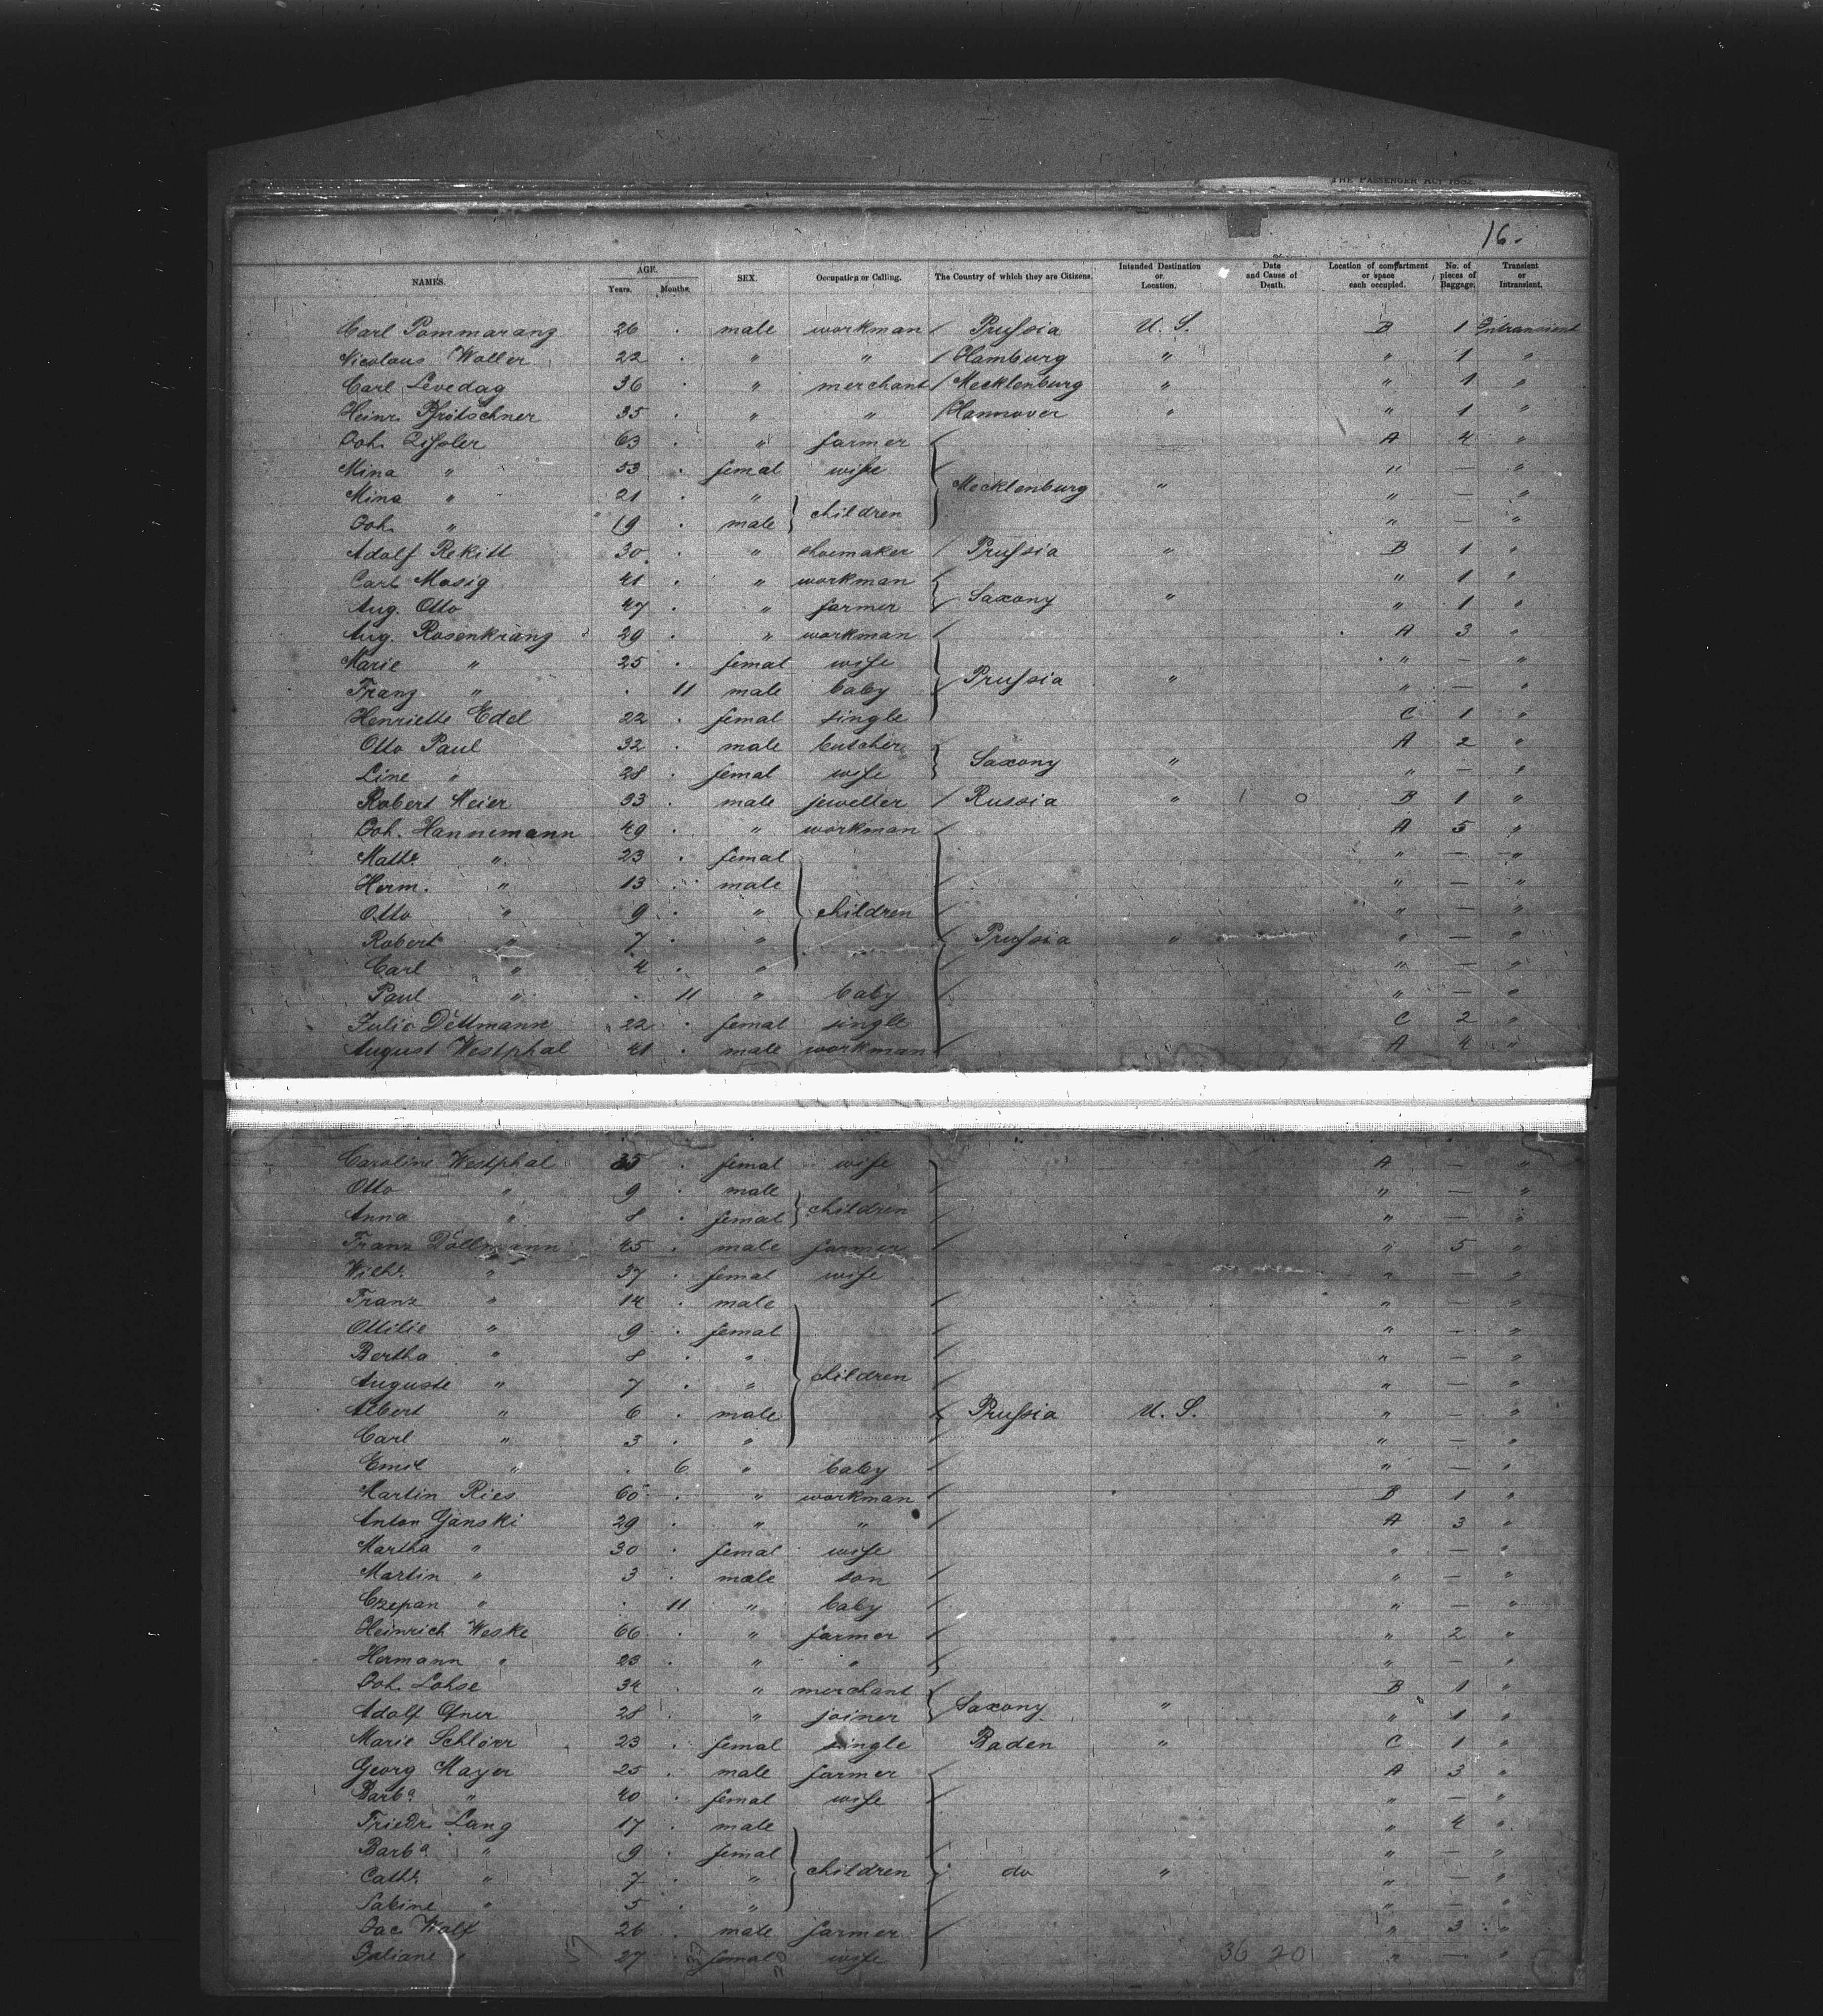 THE PASSENGER ACT 1882.
16.
NAMES. AGE. Years. Months. SEX. Occupation or Calling. The Country of which they are Citizens. Intended Destination or Location. Date and Cause of Death. Location of compartment or space each occupied. No. of pieces of Baggage. Transient or Intransient.
Carl Pommarang 26 . male workman / Prussia U. S. B 1 Intransient
Nicolaus Woller 22 . " " / Hamburg " " 1 "
Carl Levedag 36 . " merchant / Mecklenburg " " 1 "
Heinr. Pfrötschner 35 . " " / Hannover " " 1 "
Joh. 63 . " farmer A 4 "
Mina " 53 . femal wife " — "
Mina " 21 . " children Mecklenburg " " — "
Joh. " 19 . male " — "
Adolf Rekitt 30 . " shoemaker / Prussia " B 1 "
Carl Mosig 41 . " workman " 1 "
Aug. Otto 47 . " farmer Saxony " " 1 "
Aug. Rosenkranz 29 . " workman A 3 "
Marie " 25 . femal wife " — "
Franz " . 11 male baby Prussia " " — "
Henriette Edel 22 . femal single C 1 "
Otto Paul 32 . male butcher A 2 "
Line " 28 . femal wife Saxony " " — "
Robert Meier 33 . male jeweller / Russia " B 1 "
Joh. Hannemann 49 . " workman A 5 "
Mathe " 23 . femal " — "
Herm. " 13 . male " — "
Otto " 9 . " children " — "
Robert " 7 . " Prussia " " — "
Carl " 4 . " " — "
Paul " . 11 " baby " — "
Julie Dettmann 22 . femal single C 2 "
August Westphal 41 . male workman A 4 "
Caroline Westphal 35 . femal wife A — "
Otto " 9 . male " — "
Anna " 8 . femal children " — "
Franz Döllmann 45 . male farmer " 5 "
Wilhe " 37 . femal wife " — "
Franz " 14 . male " — "
Ottilie " 9 . femal " — "
Bertha " 8 . " " — "
Auguste " 7 . " children " — "
Albert " 6 . male Prussia U. S. " — "
Carl " 3 . " " — "
Emil " . 6 " baby " — "
Martin Ries 60 . " workman B 1 "
Anton Ganski 29 . " " A 3 "
Martha " 30 . femal wife " — "
Martin " 3 . male son " — "
Czepan " . 11 " baby " — "
Heinrich Weske 66 . " farmer " 2 "
Hermann " 23 . " " " — "
Joh. Lohse 34 . " merchant B 1 "
Adolf 28 . " joiner Saxony " " 1 "
Marie Schlörr 23 . femal single Baden " C 1 "
Georg Mayer 25 . male farmer A 3 "
Barba " 40 . femal wife " — "
Friedr. Lang 17 . male " 4 "
Barba " 9 . femal " — "
Cathe " 7 . " children do " " — "
Sabine " 5 . " " — "
Jac Wolf 26 . male farmer " 3 "
Juliane " 27 . femal wife 36 20 " — "